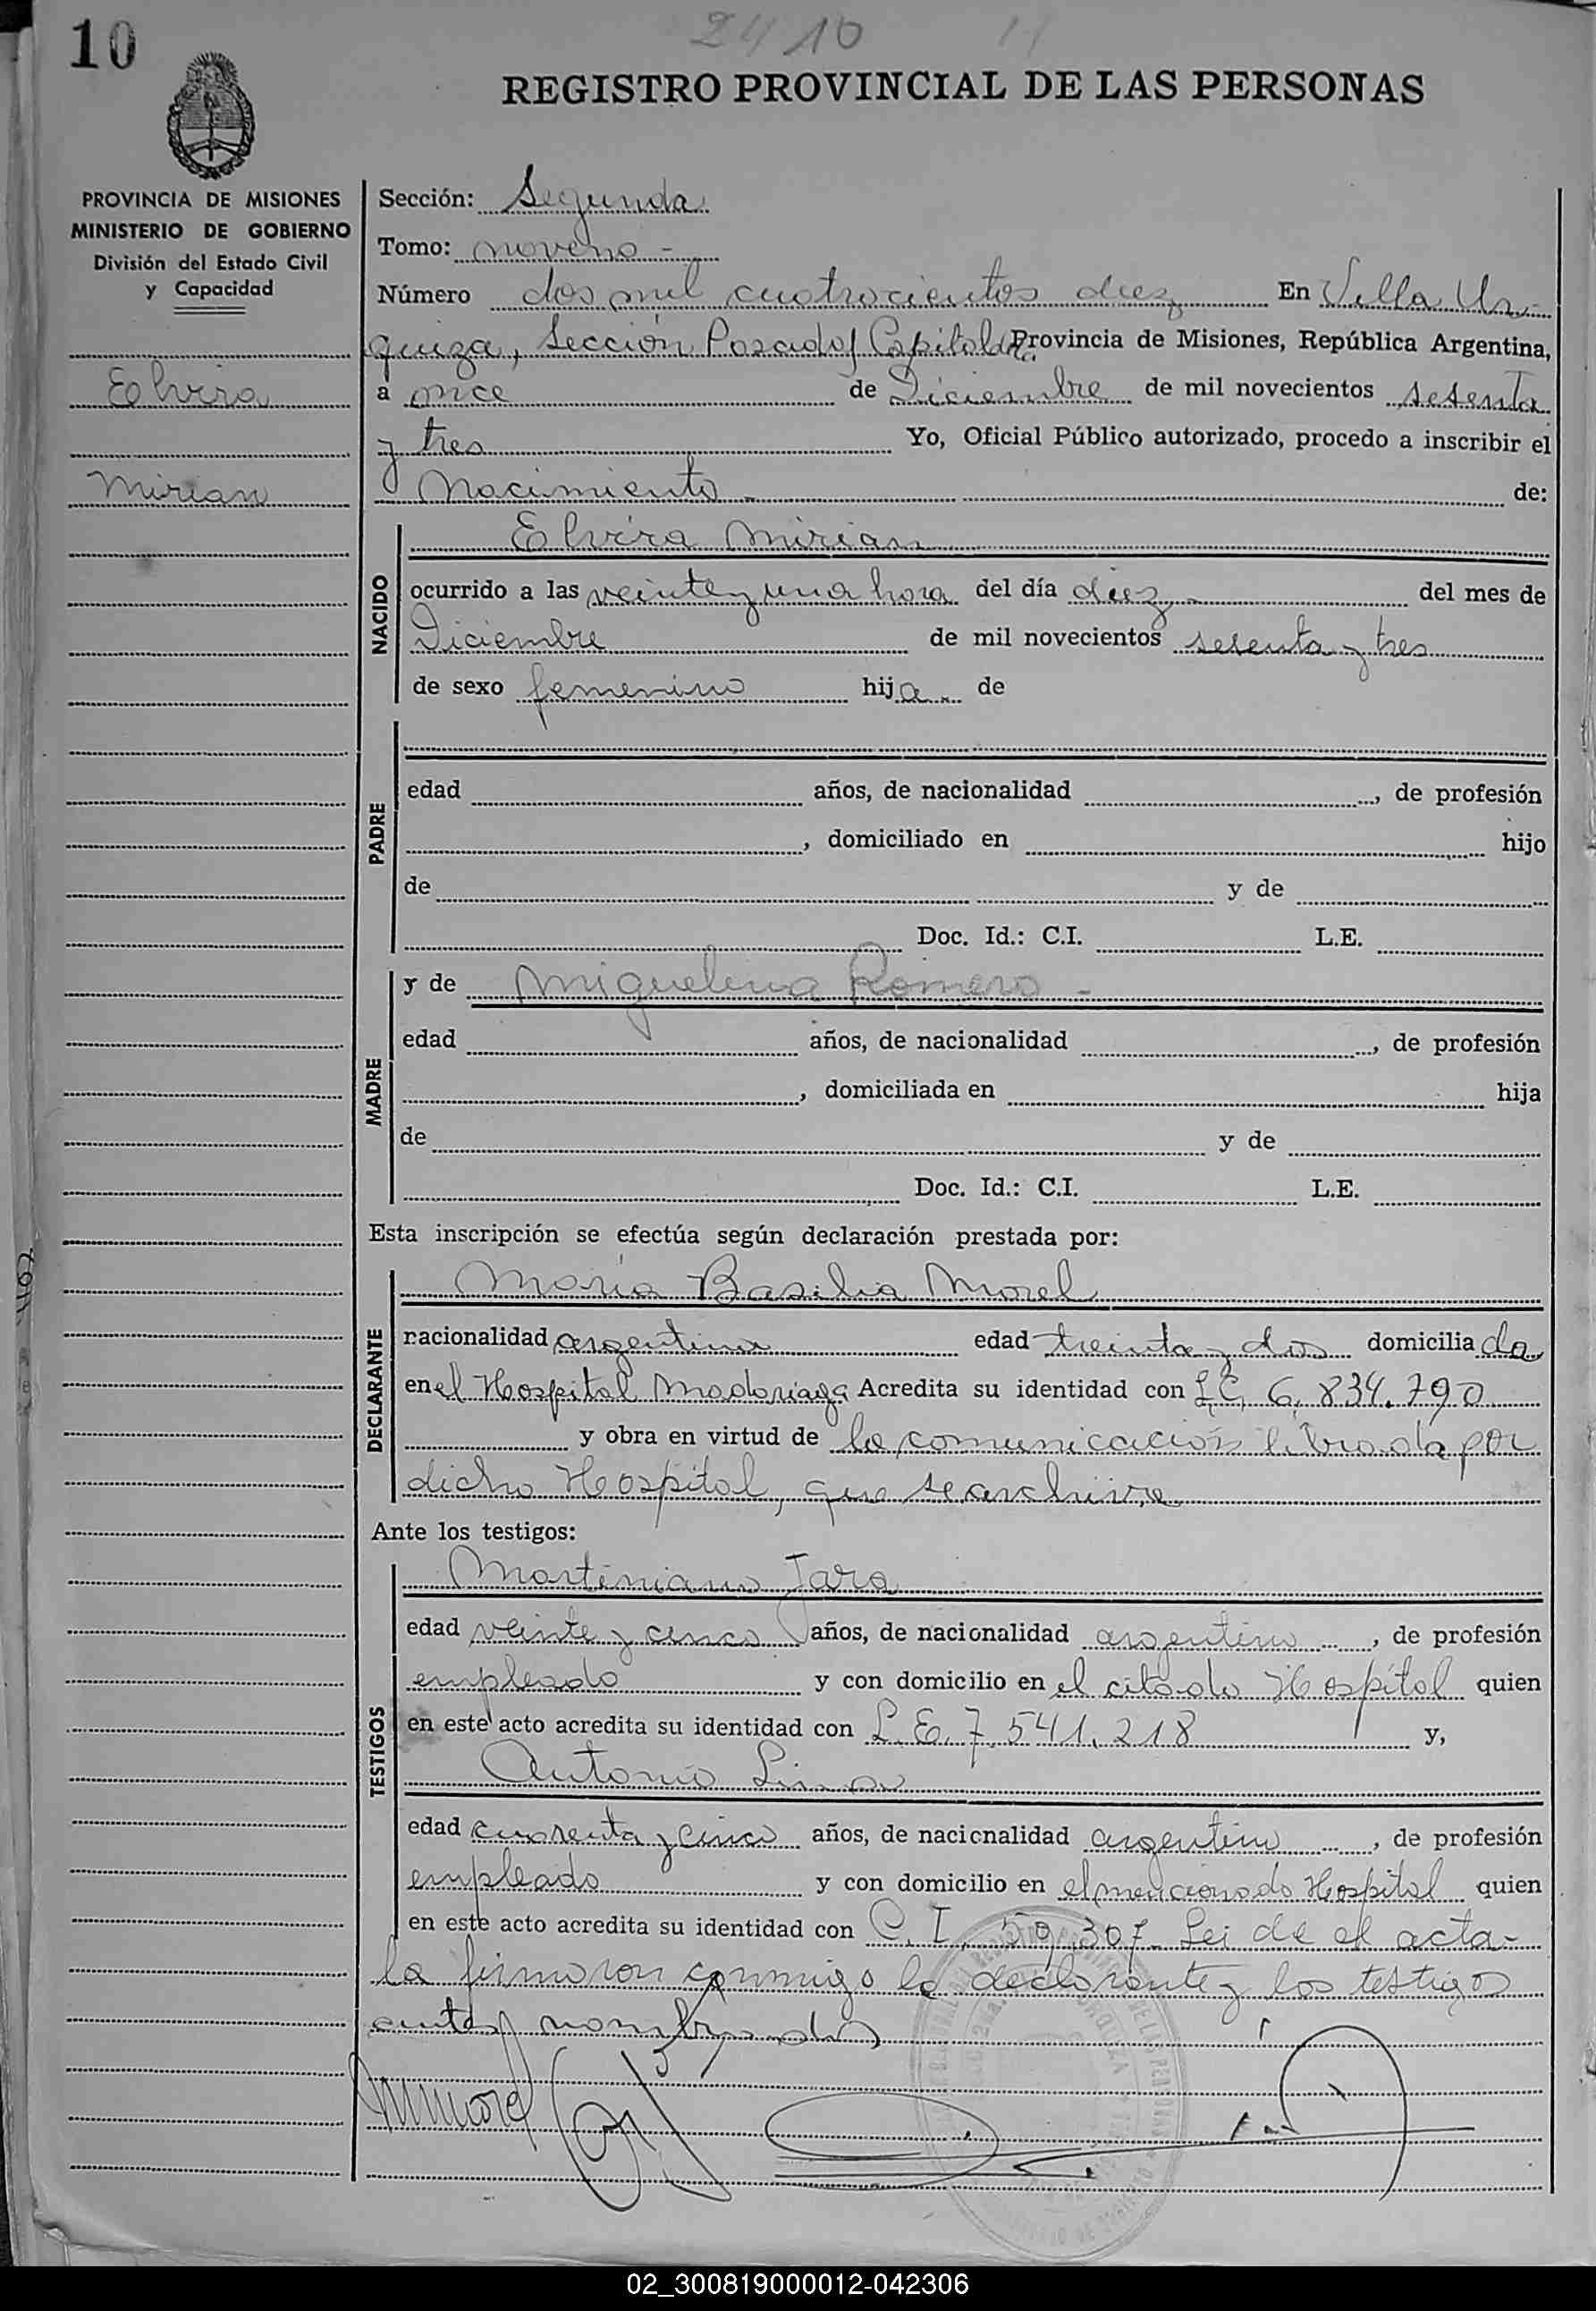 10
2410
REGISTRO PROVINCIAL DE LAS PERSONAS
PROVINCIA DE MISIONES
MINISTERIO DE GOBIERNO
División del Estado Civil
y Capacidad
Elvira
Mirian
Sección: Segunda
Tomo: noveno -
Número dos mil cuatrocientos diez En Villa Ur-
quiza, Sección Posadas Capital de la Provincia de Misiones, República Argentina,
a once de Diciembre de mil novecientos sesenta
y tres Yo, Oficial Público autorizado, procedo a inscribir el
Nacimiento - de:
NACIDO
Elvira Mirian
ocurrido a las veinte y una hora del día diez - del mes de
Diciembre de mil novecientos sesenta y tres
de sexo femenino hija. de
PADRE
edad años, de nacionalidad , de profesión
, domiciliado en hijo
de y de
Doc. Id.: C.I. L.E.
MADRE
y de Miguelina Romero -
edad años, de nacionalidad , de profesión
, domiciliada en hija
de y de
Doc. Id.: C.I. L.E.
Esta inscripción se efectúa según declaración prestada por:
DECLARANTE
María Basilia Morel
nacionalidad argentina edad treinta y dos domiciliada
en el Hospital Madariaga Acredita su identidad con L.C. 6.834.790
y obra en virtud de la comunicación librada por
dicho Hospital, que se archiva
Ante los testigos:
TESTIGOS
Martiniano Jara
edad veinte y cinco años, de nacionalidad argentino , de profesión
empleado y con domicilio en el citado Hospital quien
en este acto acredita su identidad con L.E. 7.541.218 y,
Antonio
edad cuarenta y cinco años, de nacionalidad argentino , de profesión
empleado y con domicilio en el mencionado Hospital quien
en este acto acredita su identidad con C.I. 59.307 Leida el acta-
la firmaron conmigo la declarante y los testigos
antes nombrados
02_300819000012-042306